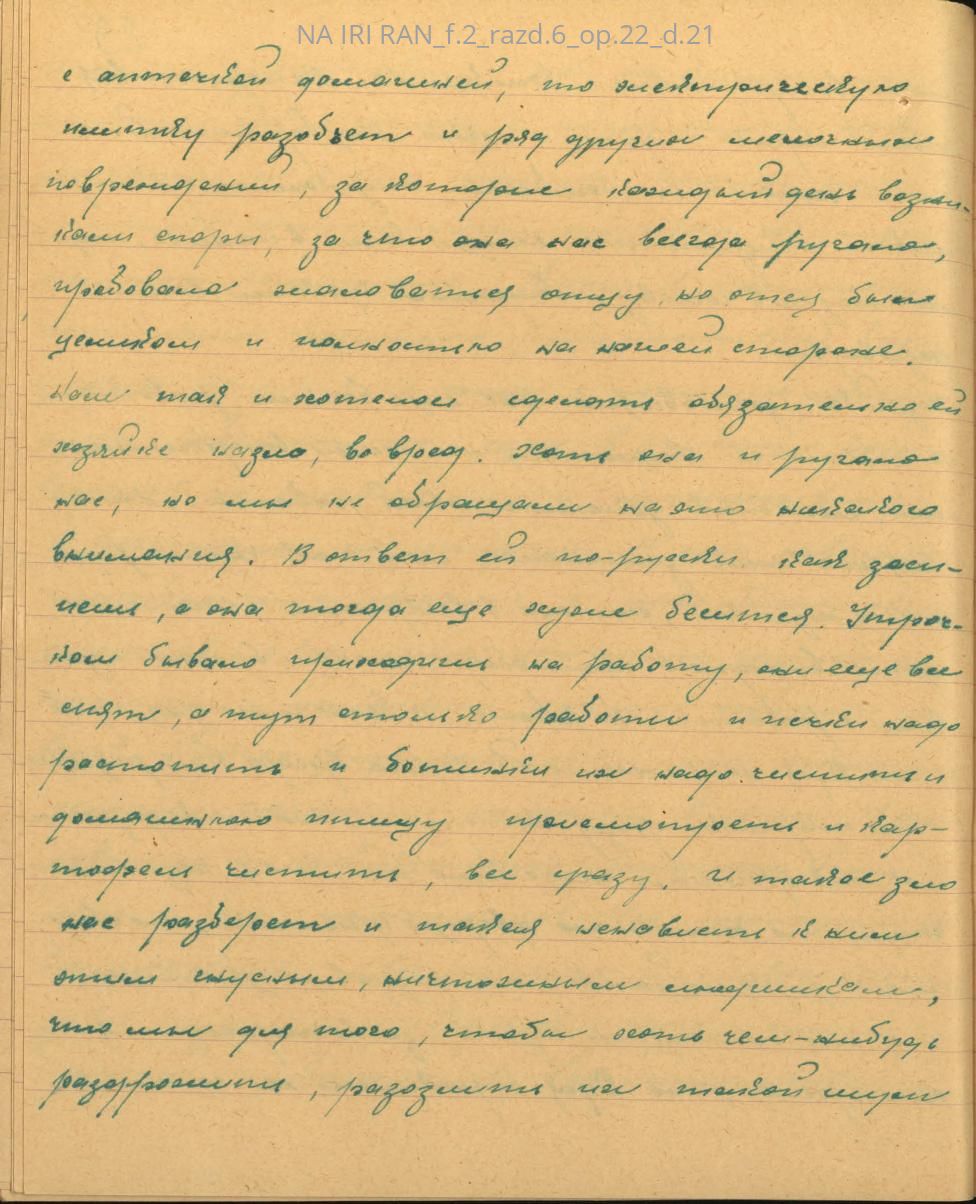 NA IRI RAN_f.2_razd.6_op.22_d.21
с аптечкой домашней, то электрическую
плитку разобьет и ряд других мелочных
повреждений, за которые каждый день возни-
кали споры, за что она нас всегда ругала,
пробовала жаловаться отцу, но отец был
целиком и полностью на нашей стороне.
Нам так и хотелось сделать обязательно ей
хозяйке назло, во вред. Хоть она и ругала
нас, но мы не обращали на это никакого
внимания. В ответ ей по-русски как
а она тогда еще хуже бесится. Утроч-
ком бывало приходишь на работу, они еще все
спят, а тут столько работы и печки надо
растопить и ботинки им надо чистить и
домашнюю птицу присмотреть и кар-
тофель чистить, все сразу. И такое зло
нас разберет и такая ненависть к ним
этим гнусным, ничтожным людишкам,
что мы для того, чтобы хоть чем-нибудь
раздразнить, разозлить их такой шум